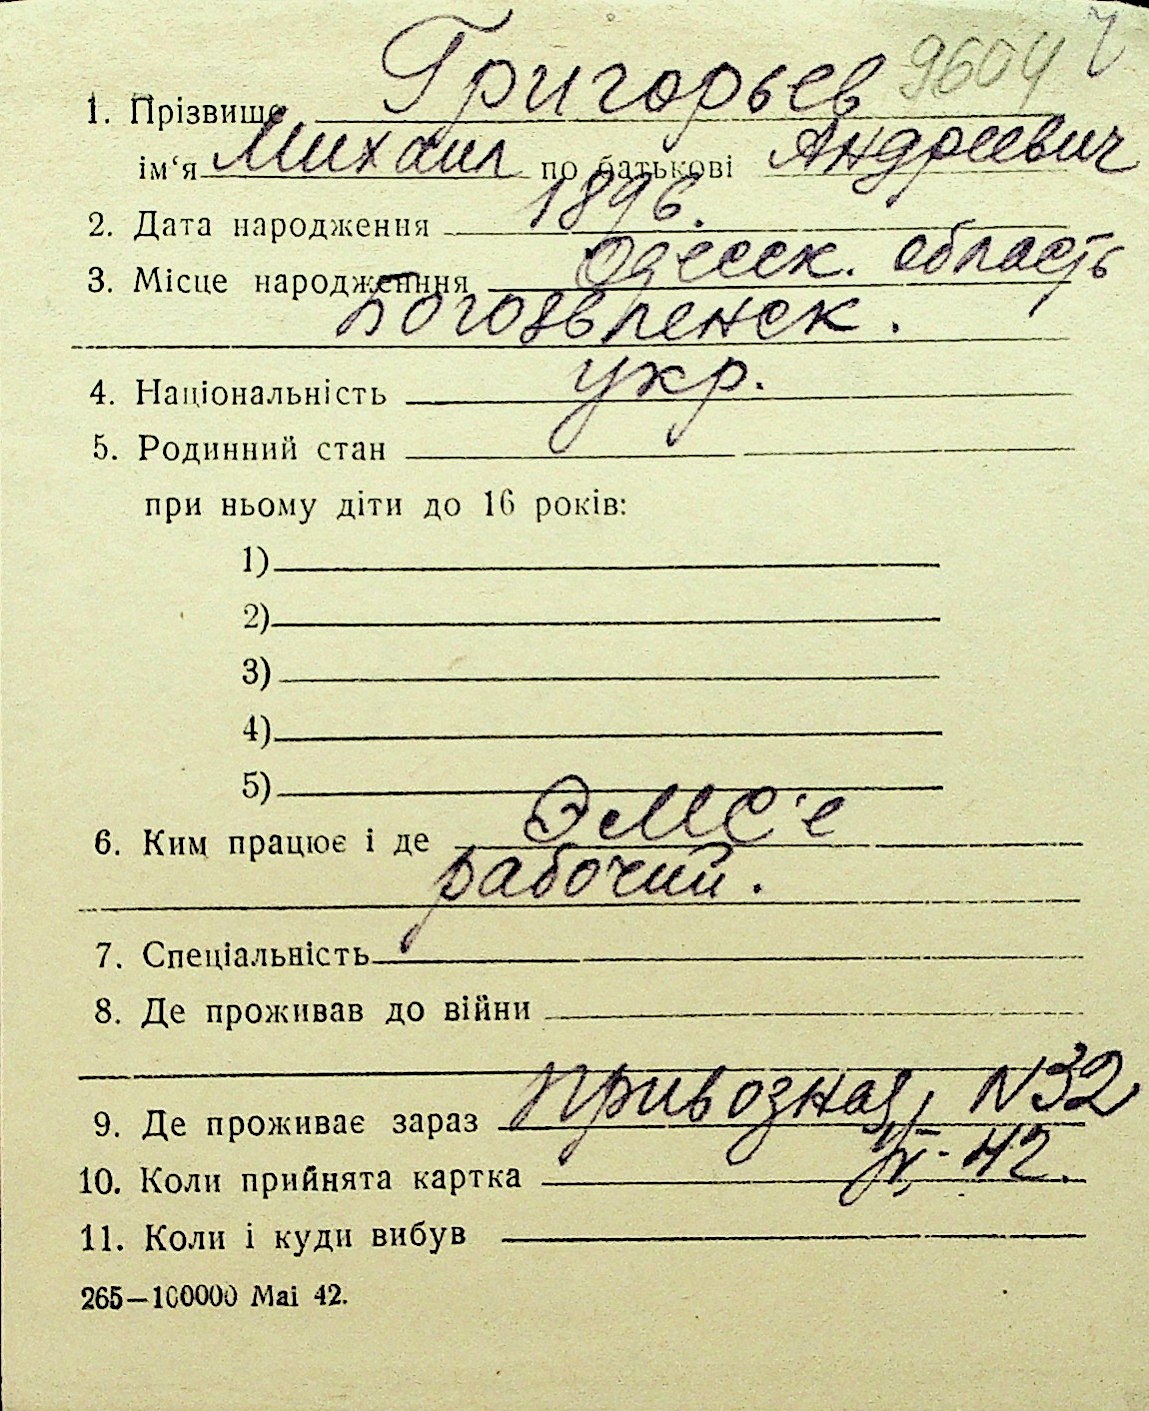 9604
1. Прізвище Григорьев
ім‘я Михаил по батькові Андреевич
2. Дата народження 1896.
3. Місце народження Одесск. область
Богоявленск.
4. Національність укр.
5. Родинний стан
при ньому діти до 16 років:
1)
2)
3)
4)
5)
6. Ким працює і де ЭМС'е
рабочий.
7. Спеціальність
8. Де проживав до війни
9. Де проживає зараз Привозная, N32
10. Коли прийнята картка 42.
11. Коли і куди вибув
265—100000 Mai 42.